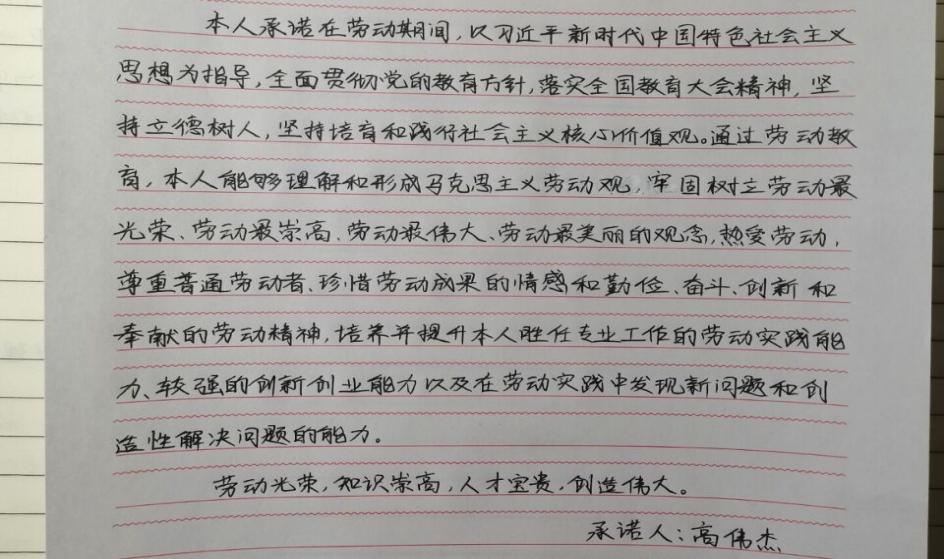 本人承诺在劳动期间，以习近平新时代中国特色社会主义
思想为指导，全面贯彻党的教育方针，落实全国教育大会精神，坚
持立德树人，坚持培育和践行社会主义核心价值观。通过劳动教
育，本人能够理解和形成马克思主义劳动观，牢固树立劳动最
光荣、劳动最崇高、劳动最伟大、劳动最美丽的观念，热爱劳动，
尊重普通劳动者、珍惜劳动成果的情感和勤俭、奋斗、创新和
奉献的劳动精神，培养并提升本人胜任专业工作的劳动实践能
力、较强的创新创业能力以及在劳动实践中发现新问题和创
造性解决问题的能力。
劳动光荣，知识崇高，人才宝贵，创造伟大。
承诺人：高伟杰